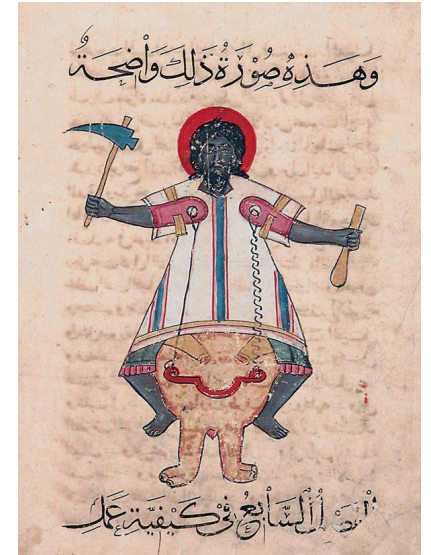 وَهَذِهِ صُوْرَةُ ذَلِكَ وَاْضِحَةُ
الفصل السَّابِعُ فِي كَيفيَّةِ عَمَلِ